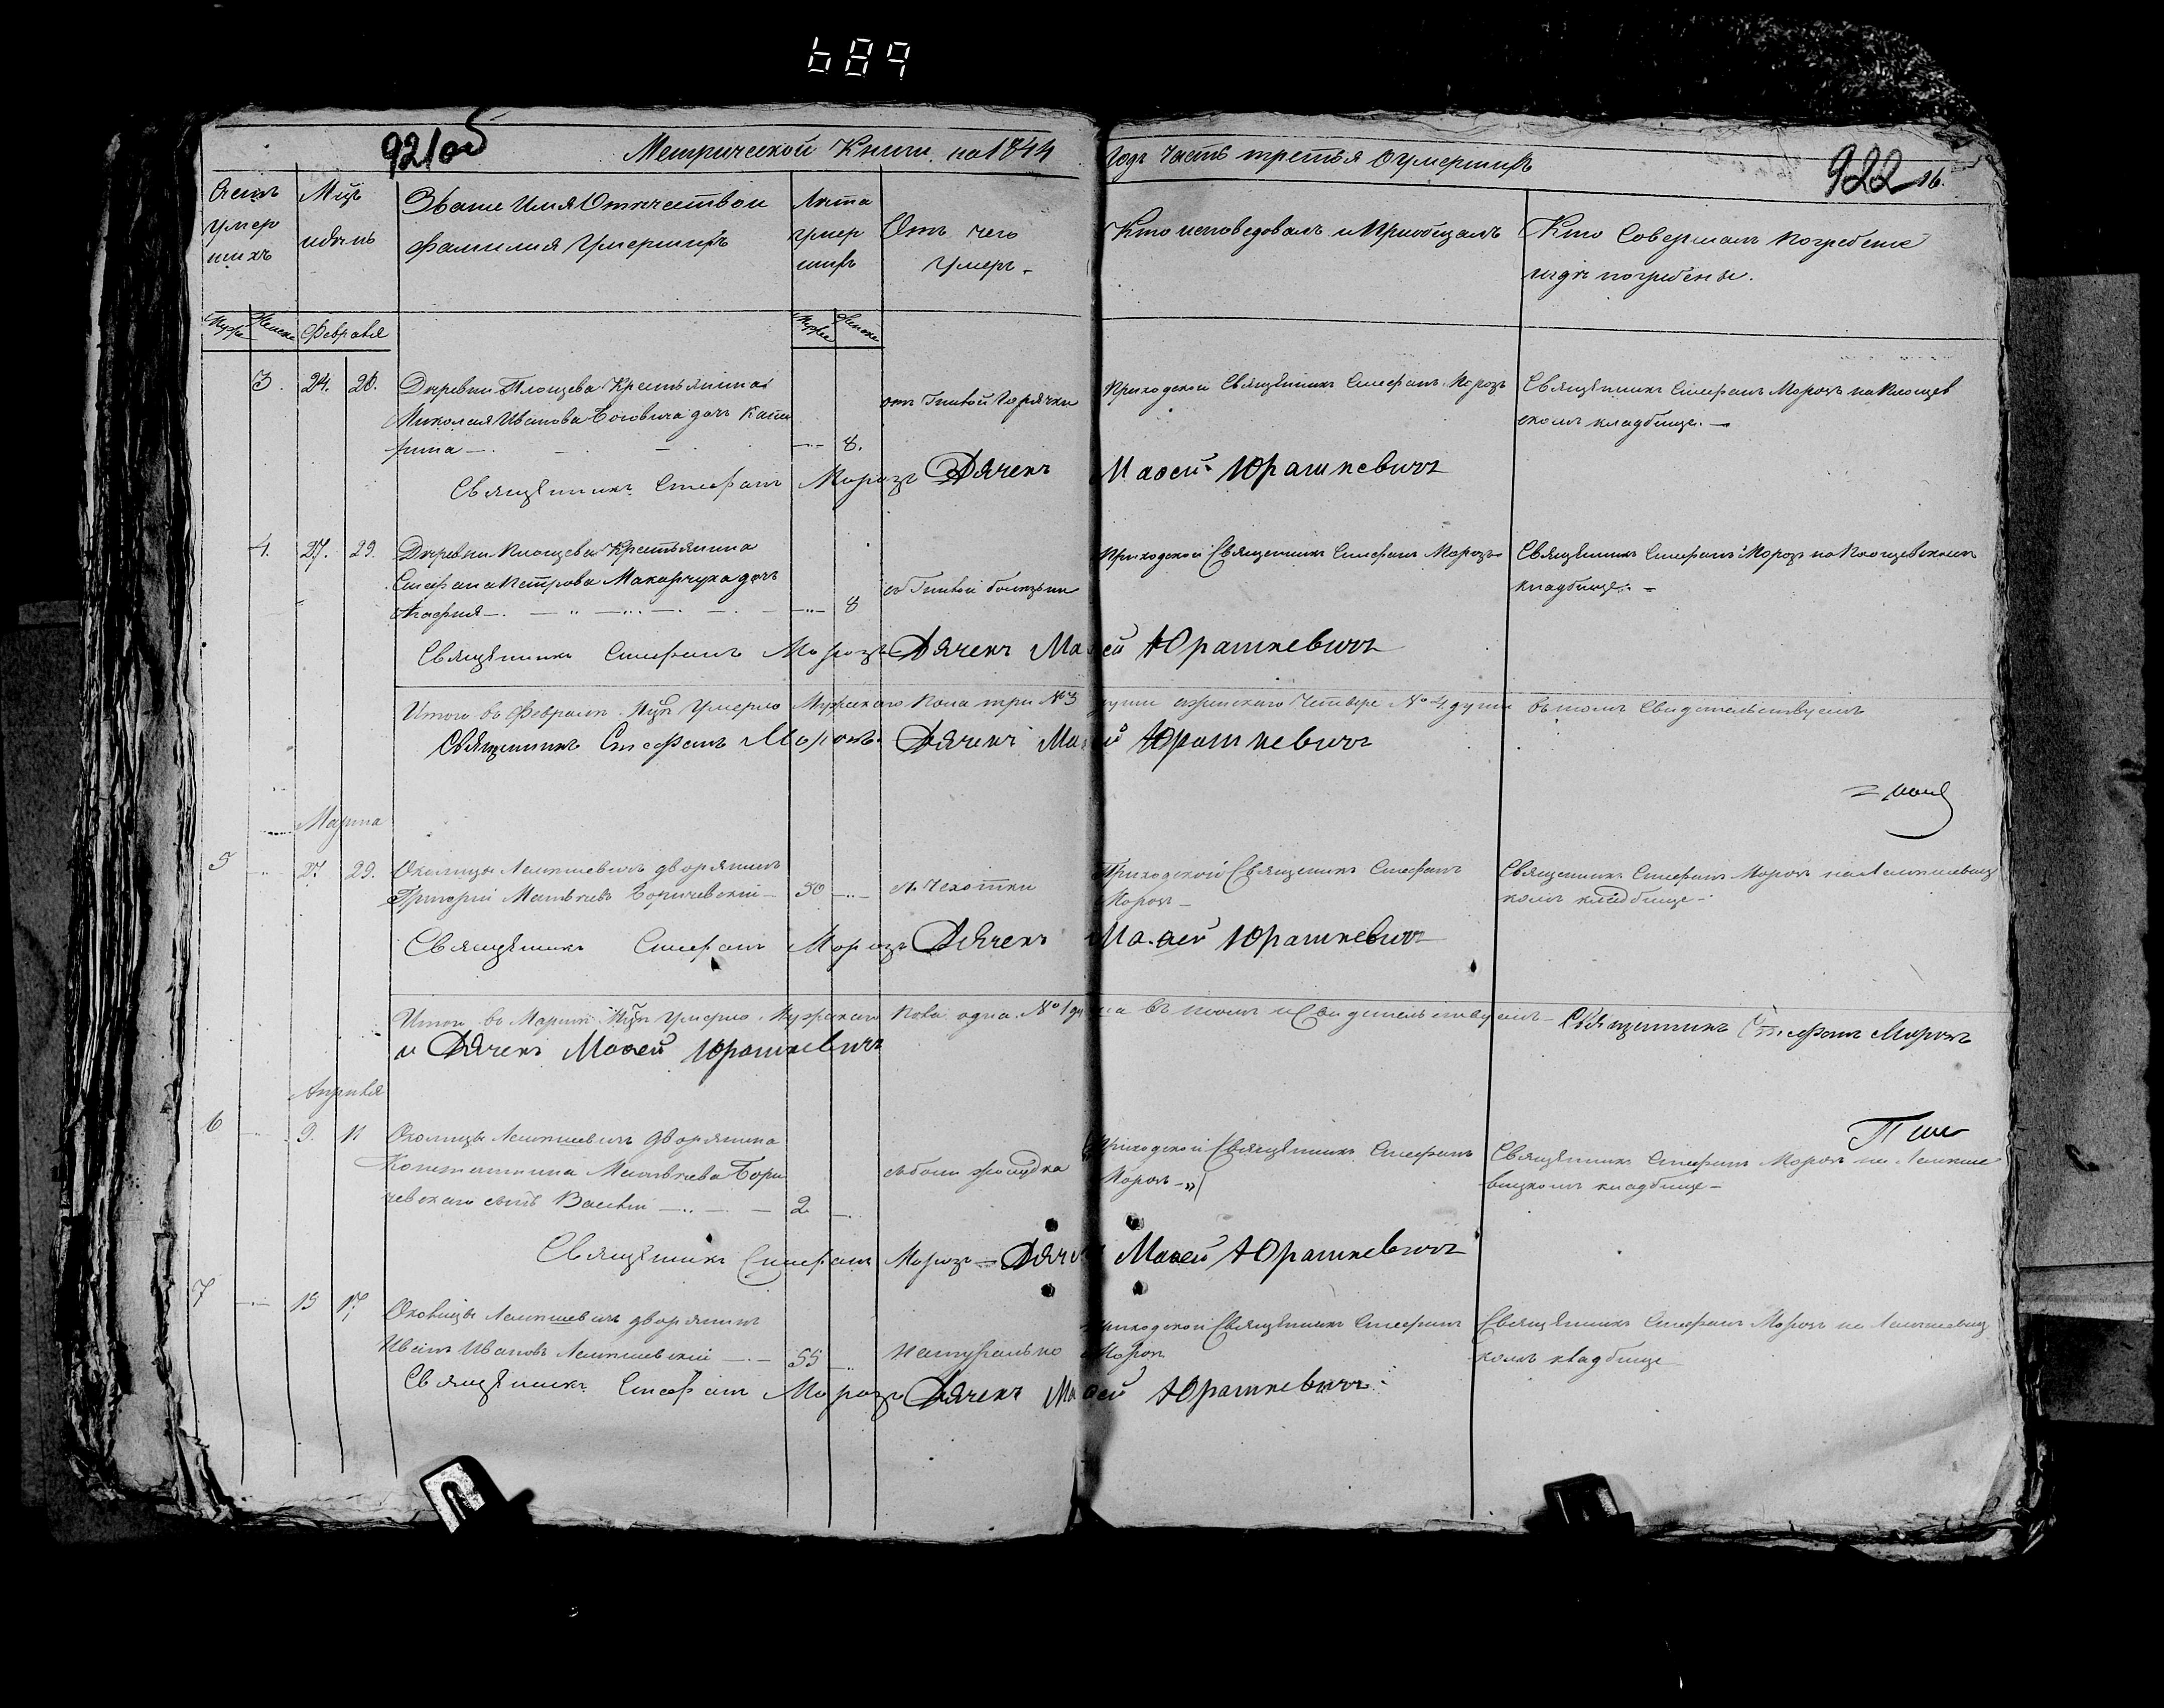 689
921об
Метрической Книги на 1844
Годъ Часть третья О умершихъ
922
16.
Счетъ умер шихъ
Мцъ и день
Званіе Имя Отчество и фамилия Умершихъ
Лѣта умер шихъ
Отъ чего Умеръ
Кто исповедовалъ и Приобщалъ
Кто Совершалъ погребеніе и гдѣ погребены.
Муж Женск
Февраля
Муж Женск
3. 24. 26. Деревни Площева Крестьянина
Николая Иванова Боговича дочь Кате
рина 8.
отъ Гнилой Горячки
Приходской Священникъ Стефанъ Морозъ
Священникъ Стефанъ Морозъ на Площев
скомъ кладбище.
Священникъ Стефанъ Морозъ Дячекъ Маѳей Юрашкевичъ
4. 27. 29. Деревни Площева Крестьянина
Стефана Петрова Макарчука дочь
Агафия 8
отъ Гнилой болезни
Приходской Священникъ Стефанъ Морозъ
Священникъ Стефанъ Морозъ на Площевскомъ
кладбище.
Священникъ Стефанъ Морозъ Дячекъ Маѳей Юрашкевичъ
Итого въ Феврале Мцѣ Умерло Мужскаго Пола три № 3 души а женскаго Четыре № 4 души въ томъ Свидетельствуемъ
Священникъ Стефанъ Морозъ. Дячекъ Маѳей Юрашкевичъ
Марта
5 27 29. Околицы Лемешевичъ дворянинъ
Григорій Матвѣевъ Боричевскій 50
отъ Чехотки
Приходской Священникъ Стефанъ
Морозъ
Священникъ Стефанъ Морозъ на Лемешевиц
комъ кладбище
Священникъ Стефанъ Морозъ Дячекъ Маѳей Юрашкевичъ
Итого въ Марте Мцѣ Умерло Мужскаго Пола одна № 1 душа въ томъ и Свидетельствуемъ Священникъ Стефанъ Морозъ
и Дячекъ Маѳей Юрашкевичъ
Апреля
6 9. 11 Околицы Лемешевичъ дворянина
Константина Матвѣева Бори
чевскаго сынъ Василій 2
отъ боли желудка
Приходской Священникъ Стефанъ
Морозъ
Священникъ Стефанъ Морозъ на Лемеше
вицкомъ кладбище
Священникъ Стефанъ Морозъ Дячекъ Маѳей Юрашкевичъ
7 15 17 Околицы Лемешевичъ дворянинъ
Иванъ Ивановъ Лемешевскій 55
Натурально
Приходской Священникъ Стефанъ
Морозъ
Священникъ Стефанъ Морозъ на Лемешевиц
комъ кладбище
Священникъ Стефанъ Морозъ Дячекъ Маѳей Юрашкевичъ